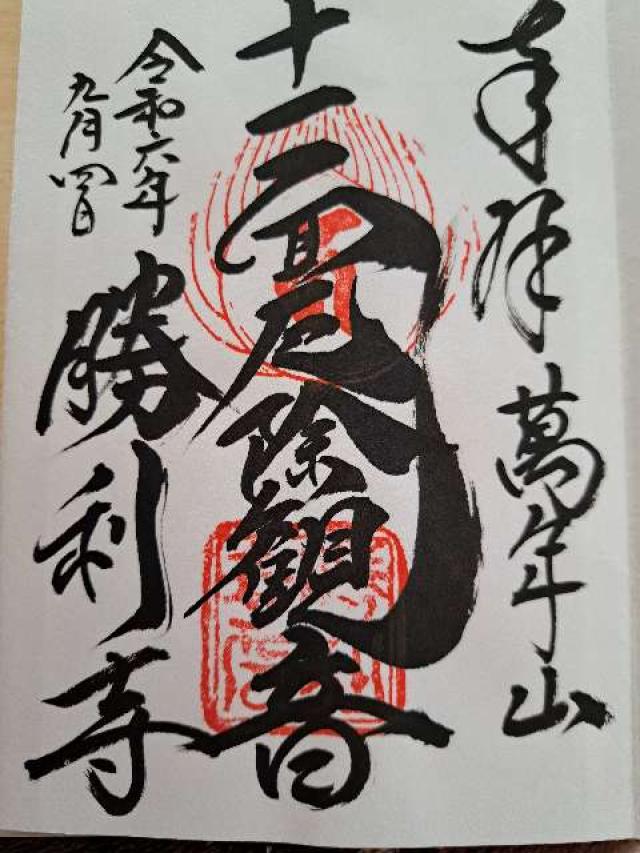 奉拝 萬年山
十一面厄除観音
勝利寺
令和六年
九月四日